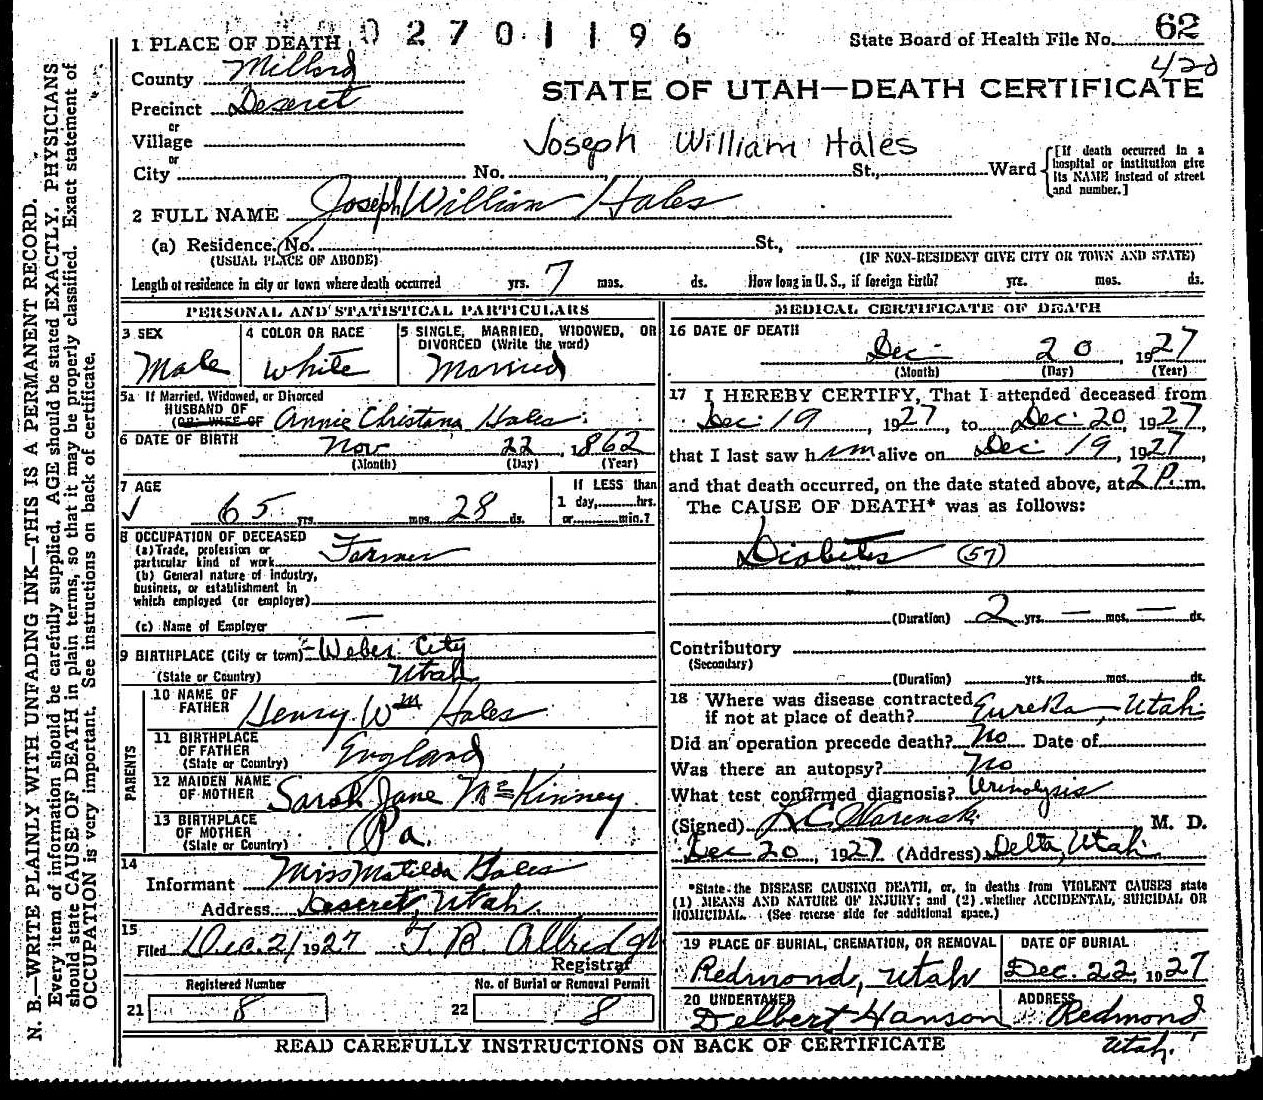 02701196
62
420
1 PLACE OF DEATH
State Board of Health File No.
County Millard
STATE OF UTAH—DEATH CERTIFICATE
Precinct Deseret
or
Village
Joseph William Hales
or
City No. St., Ward
[If death occurred in a hospital or institution give its NAME instead of street and number.]
2 FULL NAME Joseph William Hales
(a) Residence. No. St.,
(USUAL PLACE OF ABODE) (IF NON-RESIDENT GIVE CITY OR TOWN AND STATE)
Length of residence in city or town where death occurred yrs. 7 mos. ds. How long in U. S., if foreign birth? yrs. mos. ds.
PERSONAL AND STATISTICAL PARTICULARS
3 SEX
Male
4 COLOR OR RACE
White
5 SINGLE, MARRIED, WIDOWED, OR
DIVORCED (Write the word)
Married
5a If Married, Widowed, or Divorced
HUSBAND OF
(OR) WIFE OF Annie Christana Hales
6 DATE OF BIRTH Nov 22, 1862
(Month) (Day) (Year)
7 AGE
65 yrs. mos. 28 ds.
If LESS than
1 day, hrs.
or min.?
8 OCCUPATION OF DECEASED
(a) Trade, profession or
particular kind of work Farmer
(b) General nature of industry,
business, or establishment in
which employed (or employer)
(c) Name of Employer —
9 BIRTHPLACE (City or town) Weber City
(State or Country) Utah
PARENTS
10 NAME OF
FATHER Henry Wm Hales
11 BIRTHPLACE
OF FATHER
(State or Country) England
12 MAIDEN NAME
OF MOTHER Sarah Jane McKinney
13 BIRTHPLACE
OF MOTHER
(State or Country) Pa.
14
Informant Miss Matilda Hales
Address Deseret, Utah
15
Filed Dec. 21 1927 T. B. Allred
Registrar
Registered Number
21 8
No. of Burial or Removal Permit
22 8
MEDICAL CERTIFICATE OF DEATH
16 DATE OF DEATH
Dec 20, 1927
(Month) (Day) (Year)
17 I HEREBY CERTIFY, That I attended deceased from
Dec 19, 1927, to Dec 20, 1927,
that I last saw him alive on Dec 19, 1927,
and that death occurred, on the date stated above, at 2 P. m.
The CAUSE OF DEATH* was as follows:
Diabetes (57)
(Duration) 2 yrs. — mos. — ds.
Contributory
(Secondary)
(Duration) yrs. mos. ds.
18 Where was disease contracted
if not at place of death? Eureka, Utah
Did an operation precede death? No Date of
Was there an autopsy? No
What test confirmed diagnosis? Urinolysis
(Signed) M. D.
Dec 20, 1927 (Address) Delta, Utah
*State the DISEASE CAUSING DEATH, or, in deaths from VIOLENT CAUSES state
(1) MEANS AND NATURE OF INJURY; and (2) whether ACCIDENTAL, SUICIDAL OR
HOMICIDAL. (See reverse side for additional space.)
19 PLACE OF BURIAL, CREMATION, OR REMOVAL
Redmond, Utah
DATE OF BURIAL
Dec. 22, 1927
20 UNDERTAKER
Delbert Hanson
ADDRESS
Redmond
Utah.
READ CAREFULLY INSTRUCTIONS ON BACK OF CERTIFICATE
N. B.—WRITE PLAINLY WITH UNFADING INK—THIS IS A PERMANENT RECORD.
Every item of information should be carefully supplied. AGE should be stated EXACTLY. PHYSICIANS
should state CAUSE OF DEATH in plain terms, so that it may be properly classified. Exact statement of
OCCUPATION is very important. See instructions on back of certificate.